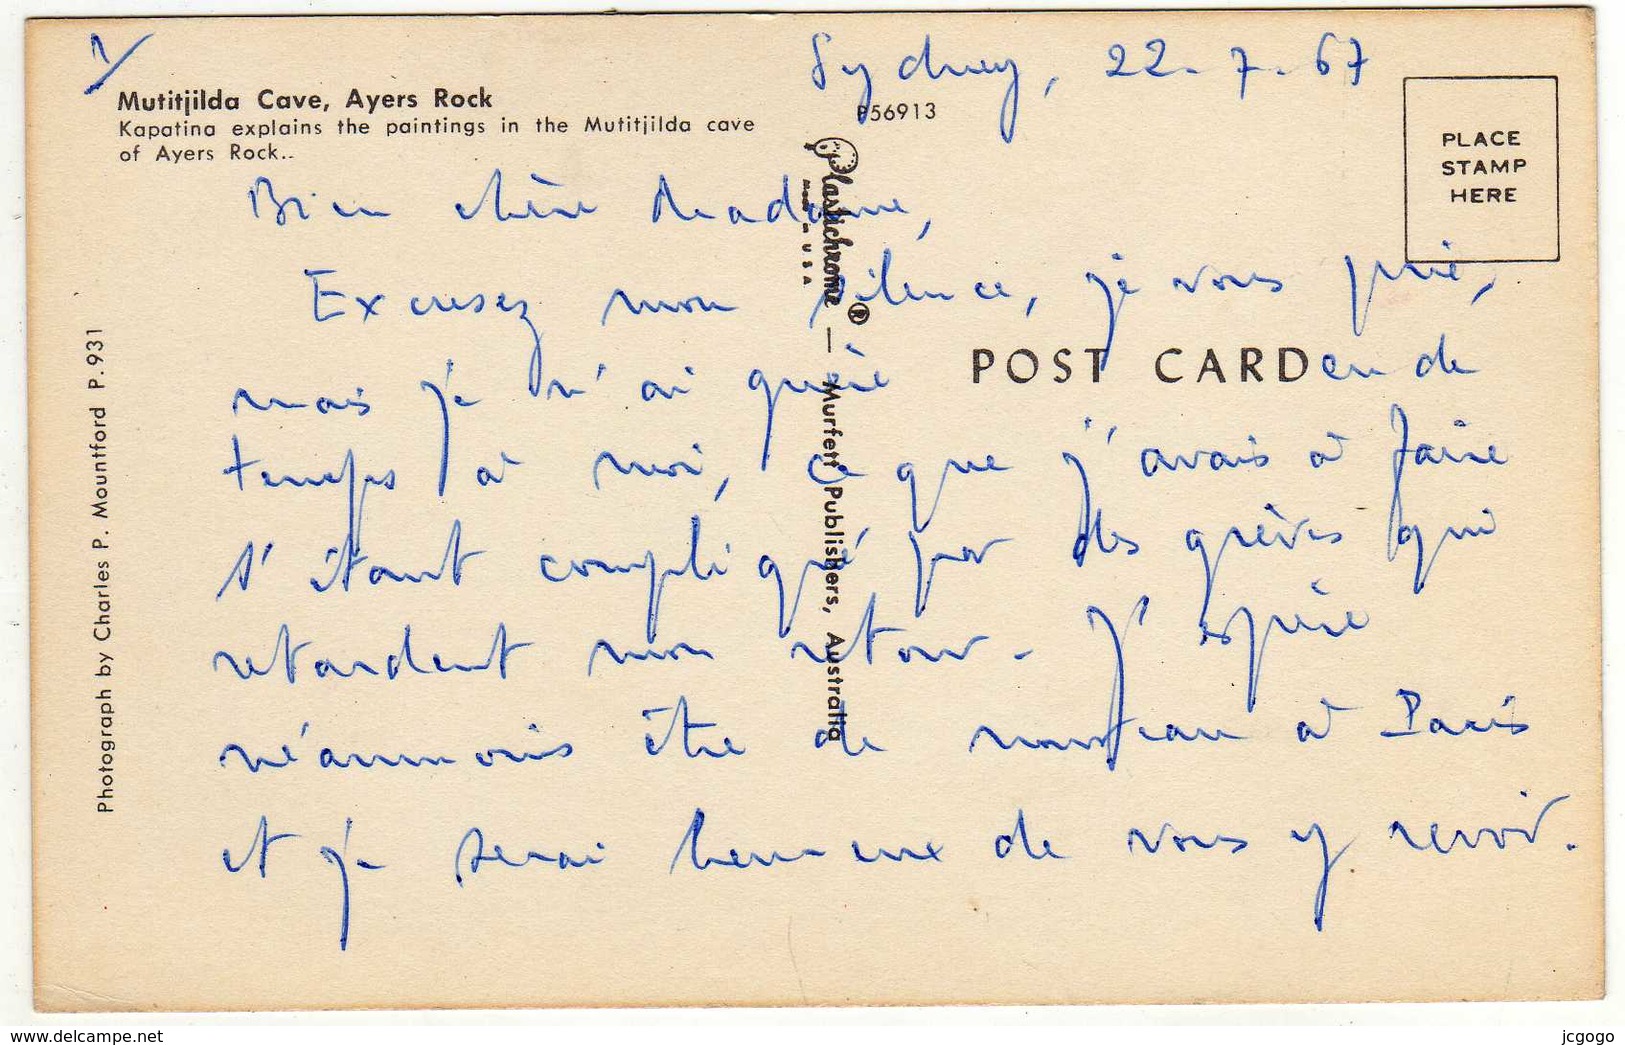 1/
Sydney, 22-7-67
Mutitjilda Cave, Ayers Rock
Kapatina explains the paintings in the Mutitjilda cave
of Ayers Rock..
P56913
PLACE
STAMP
HERE
Bien chère Madame,
Excusez mon silence, je vous prie,
mais je n'ai guère eu de
temps à moi, ce que j'avais à faire
s'étant compliqué par des grèves qui
retardent mon retour. J'espère
néanmoins être de nouveau à Paris
et je serai heureux de vous y revoir.
POST CARD
Plastichrome ® — Murfett Publishers, Australia
Made in USA
Photograph by Charles P. Mountford P.931
www.delcampe.net
jcgogo